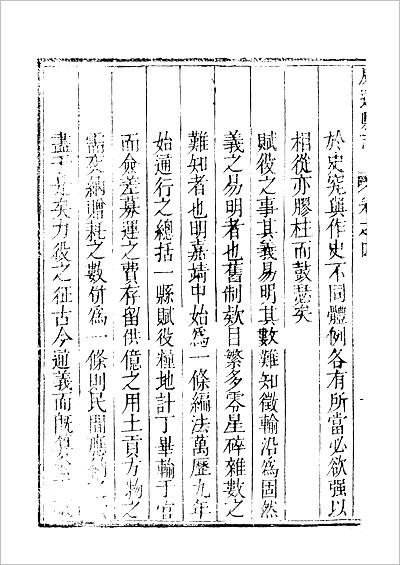 於史究與作史不同體例各有所當必欲强以
相從亦膠柱而鼓瑟矣
賦役之事其義易明其數難知徵輸沿為固然
義之易明者也舊制欵目繁多零星碎雜數之
難知者也明嘉靖中始為一條編法萬歷九年
始通行之總括一縣賦役糧地計丁畢輸于官
而僉差募運之費存留供億之用土貢方物之
需交納贈耗之數併為一條則民間應
盡于是矣力役之征古今通義而旣